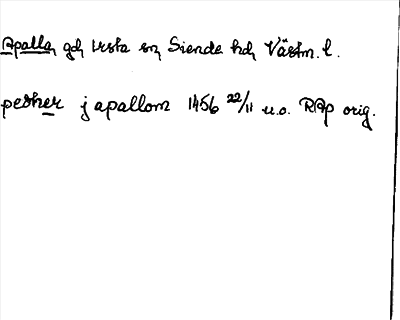 Apalla, gd, Irsta sn, Siende hd, Västm. l.
pedher j apallom 1456 22/11 u.o. RAp orig.